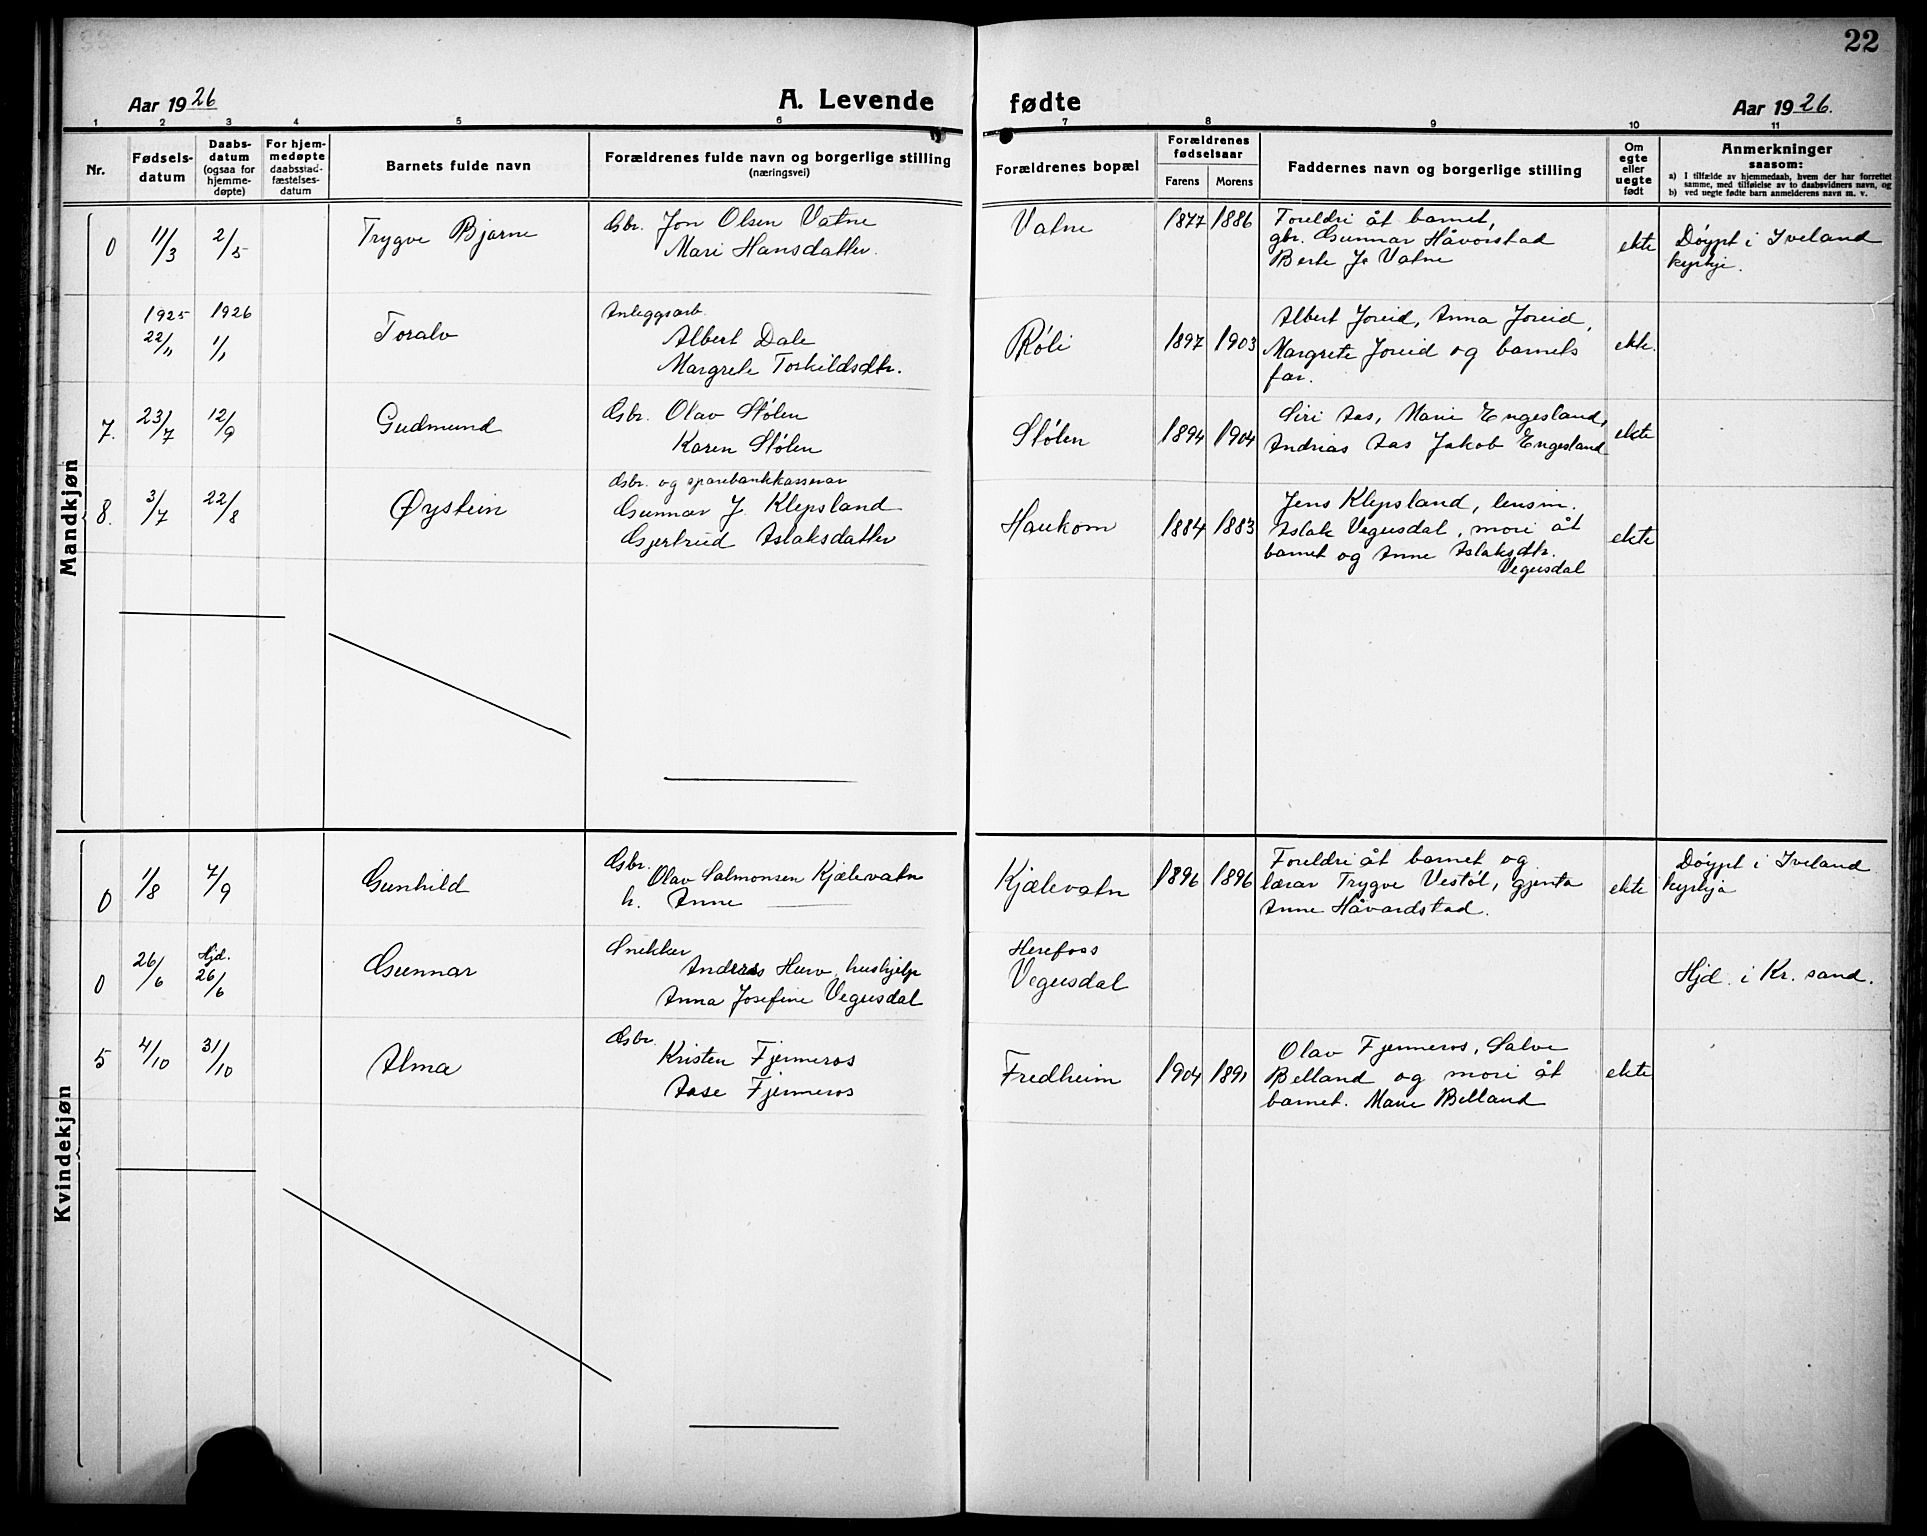 22
Aar 1926
A. Levende fødte
Aar 1926.
1 2 3 4 5 6 7 8 9 10 11
Nr.
Fødsels-
datum
Daabs-
datum
(ogsaa for
hjemme-
døpte)
For hjem-
medøpte
daabsstad-
fæstelses-
datum
Barnets fulde navn
Forældrenes fulde navn og borgerlige stilling
(næringsvei)
Forældrenes bopæl
Forældrenes
fødselsaar
Farens Morens
Faddernes navn og borgerlige stilling
Om
egte
eller
uegte
født
Anmerkninger
saasom:
a) I tilfælde av hjemmedaab, hvem der har forrettet
samme, med tilføielse av to daabsvidners navn, og
b) ved uegte fødte barn anmelderens navn m. v.
Mandkjøn
0 11/3 2/5 Trygve Bjarne
Gbr. Jon Olsen Vatne
Mari Hansdatter.
Vatne 1877 1886
Foreldri åt barnet,
gbr. Gunnar Håvorstad
Berte J. Vatne
ekte
Døypt i Iveland
kyrkje.
1925 1926
22/11 1/1 Toralv
Anleggsarb.
Albert Dale
Margrete Torkildsdtr.
Røli 1897 1903
Albert Joreid, Anna Joreid,
Margrete Joreid og barnets
far.
ekte.
7. 23/7 12/9 Gudmund
Gbr. Olav Stølen
Karen Stølen
Stølen 1894 1904
Siri Aas, Marie Engesland,
Andrias Aas Jakob Engesland
ekte
8. 3/7 22/8 Øystein
Gbr. og sparebankkasserar
Gunnar J. Klepsland
Gjertrud Aslaksdatter
Haukom 1884 1883
Jens Klepsland, lensm.
Aslak Vegusdal, mori åt
barnet og Anne Aslaksdtr.
Vegusdal
ekte
Kvindekjøn
0 1/8 7/9 Gunhild
Gbr.
Olav Salmonsen Kjælevatn
h. Anne
Kjælevatn 1896 1896
Foreldri åt barnet og
lærar Trygve Vestøl, gjenta
Anne Håvardstad.
ekte
Døypt i Iveland
kyrkja
0 26/6 Hjd. 26/6 Gunnar
Snekker
Anders Hurv, hushjelp
Anna Josefine Vegusdal
Herefoss
Vegusdal
Hjd. i Kr. sand.
5 4/10 31/10 Alma
Gbr.
Kristen Fjermeros
Aase Fjermeros
Fredheim 1904 1891
Olav Fjermeros, Salve
Belland og mori åt
barnet. Marie Belland
ekte